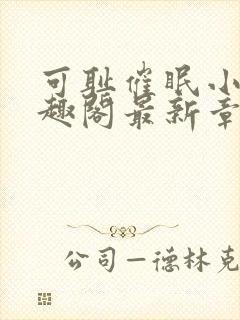 可耻催眠小
趣阁最新章
公司—德林克